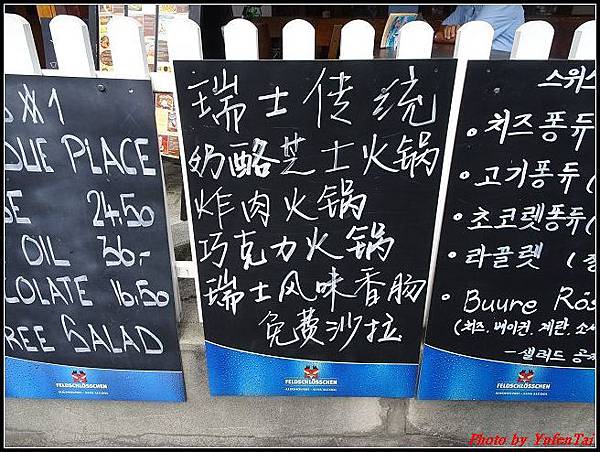 №1
DUE PLACE
SE 24.50
OIL 36.-
OLATE 16.50
FREE SALAD
FELDSCHLÖSSCHEN
瑞士传统
奶酪芝士火锅
炸肉火锅
巧克力火锅
瑞士风味香肠
免费沙拉
FELDSCHLÖSSCHEN
스위스
• 치즈퐁듀
• 고기퐁듀 (
• 초코렛퐁듀 (
• 라끌렛 (
• Buure Rös
(치즈, 베이컨, 계란, 소세
- 샐러드 공
FELDSCHLÖSSCHEN
Photo by YufenTai